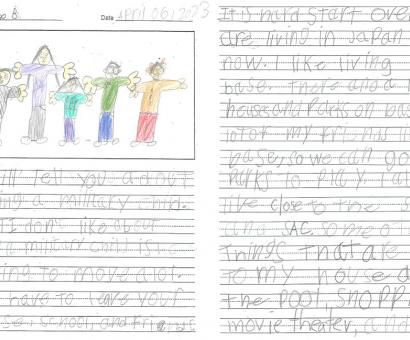 Date April 06, 2023
tell you about
ng a military child.
I don't like about
a military child is
ing to move a lot.
have to leave your
se, school, and friends
It is hard start ove
are living in Japan
now. I like living
base. There are a l
houses and Parks on bas
lot of my friends li
base, so we can go
Parks to play.
live close to the
and SAC. some o
things that are
to my house a
the Pool, shopp
movie theater, and